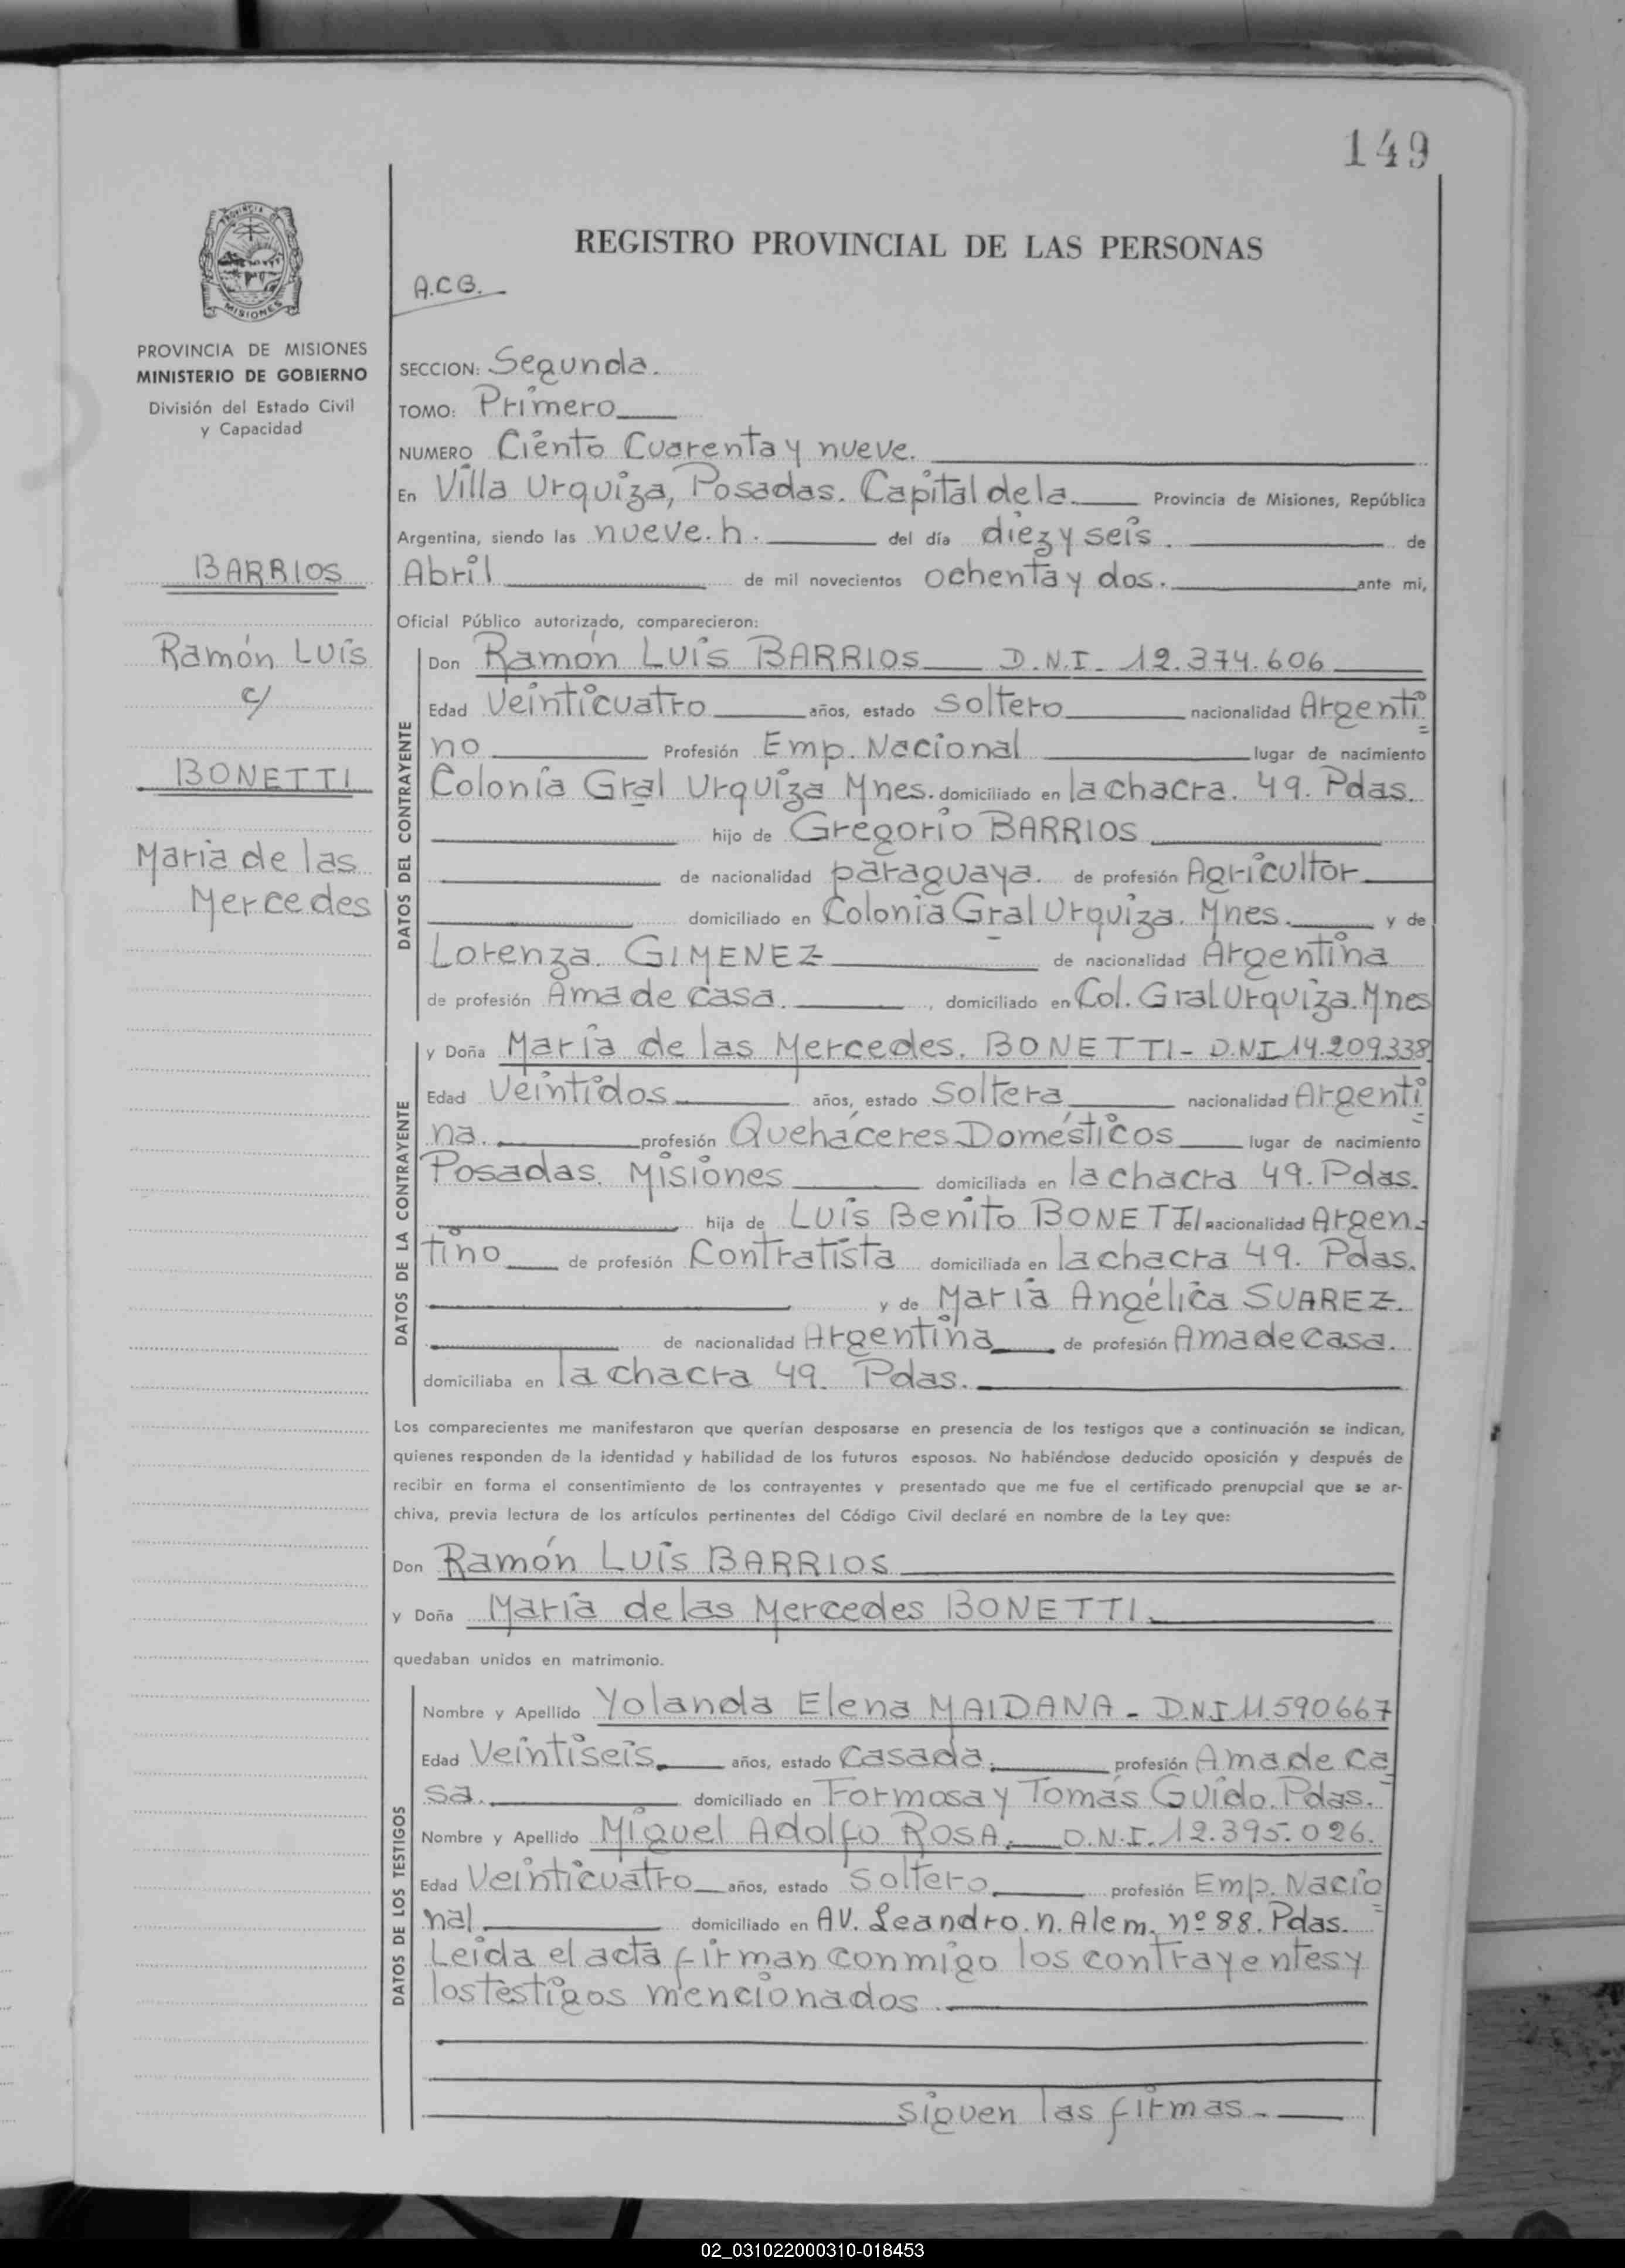 149
PROVINCIA DE
MISIONES
PROVINCIA DE MISIONES
MINISTERIO DE GOBIERNO
División del Estado Civil
y Capacidad
BARRIOS
Ramón Luis
c/
BONETTI
Maria de las
Mercedes
REGISTRO PROVINCIAL DE LAS PERSONAS
A.C.B.
SECCION: Segunda.
TOMO: Primero
NUMERO Ciento Cuarenta y nueve.
En Villa Urquiza, Posadas. Capital de la Provincia de Misiones, República
Argentina, siendo las nueve. h. del día diez y seis. de
Abril de mil novecientos ochenta y dos. ante mi,
Oficial Público autorizado, comparecieron:
DATOS DEL CONTRAYENTE
Don Ramón Luis BARRIOS D.N.I. 12.374.606
Edad Veinticuatro años, estado soltero nacionalidad Argenti
no Profesión Emp. Nacional lugar de nacimiento
Colonia Gral Urquiza Mnes. domiciliado en la chacra. 49. Pdas.
hijo de Gregorio BARRIOS
de nacionalidad paraguaya. de profesión Agricultor
domiciliado en Colonia Gral Urquiza. Mnes. y de
Lorenza. GIMENEZ de nacionalidad Argentina
de profesión Ama de casa. , domiciliado en Col. Gral Urquiza. Mnes
DATOS DE LA CONTRAYENTE
y Doña María de las Mercedes. BONETTI - D.N.I 14.209.338
Edad Veintidos años, estado Soltera nacionalidad Argenti
na. profesión Quehaceres Domésticos lugar de nacimiento
Posadas. Misiones domiciliada en la chacra 49. Pdas.
hija de Luis Benito BONETTI de nacionalidad Argen.
tino de profesión Contratista domiciliada en la chacra 49. Pdas.
y de María Angélica SUAREZ.
de nacionalidad Argentina de profesión Ama de casa.
domiciliaba en la chacra 49. Pdas.
Los comparecientes me manifestaron que querían desposarse en presencia de los testigos que a continuación se indican,
quienes responden de la identidad y habilidad de los futuros esposos. No habiéndose deducido oposición y después de
recibir en forma el consentimiento de los contrayentes y presentado que me fue el certificado prenupcial que se ar-
chiva, previa lectura de los artículos pertinentes del Código Civil declaré en nombre de la Ley que:
Don Ramón Luis BARRIOS
y Doña María de las Mercedes BONETTI.
quedaban unidos en matrimonio.
DATOS DE LOS TESTIGOS
Nombre y Apellido Yolanda Elena MAIDANA - D.N.I 11.590667
Edad Veintiseis. años, estado Casada. profesión Ama de ca
sa. domiciliado en Formosa y Tomás Guido. Pdas.
Nombre y Apellido Miguel Adolfo ROSA. D.N.I. 12.395.026.
Edad Veinticuatro años, estado Soltero. profesión Emp. Nacio
nal. domiciliado en AV. Leandro. n. Alem. nº 88. Pdas.
Leida el acta firman conmigo los contrayentes y
los testigos mencionados.
siguen las firmas.
02_031022000310-018453